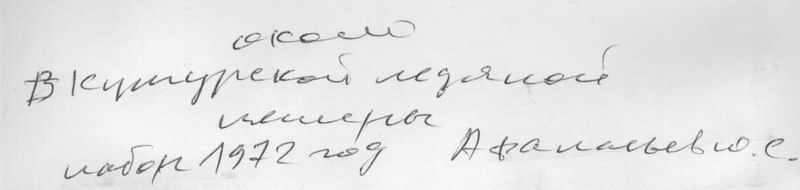 около
В Кунгурской ледяной
пещеры
набор 1972 год Афанасьев Ю.С.